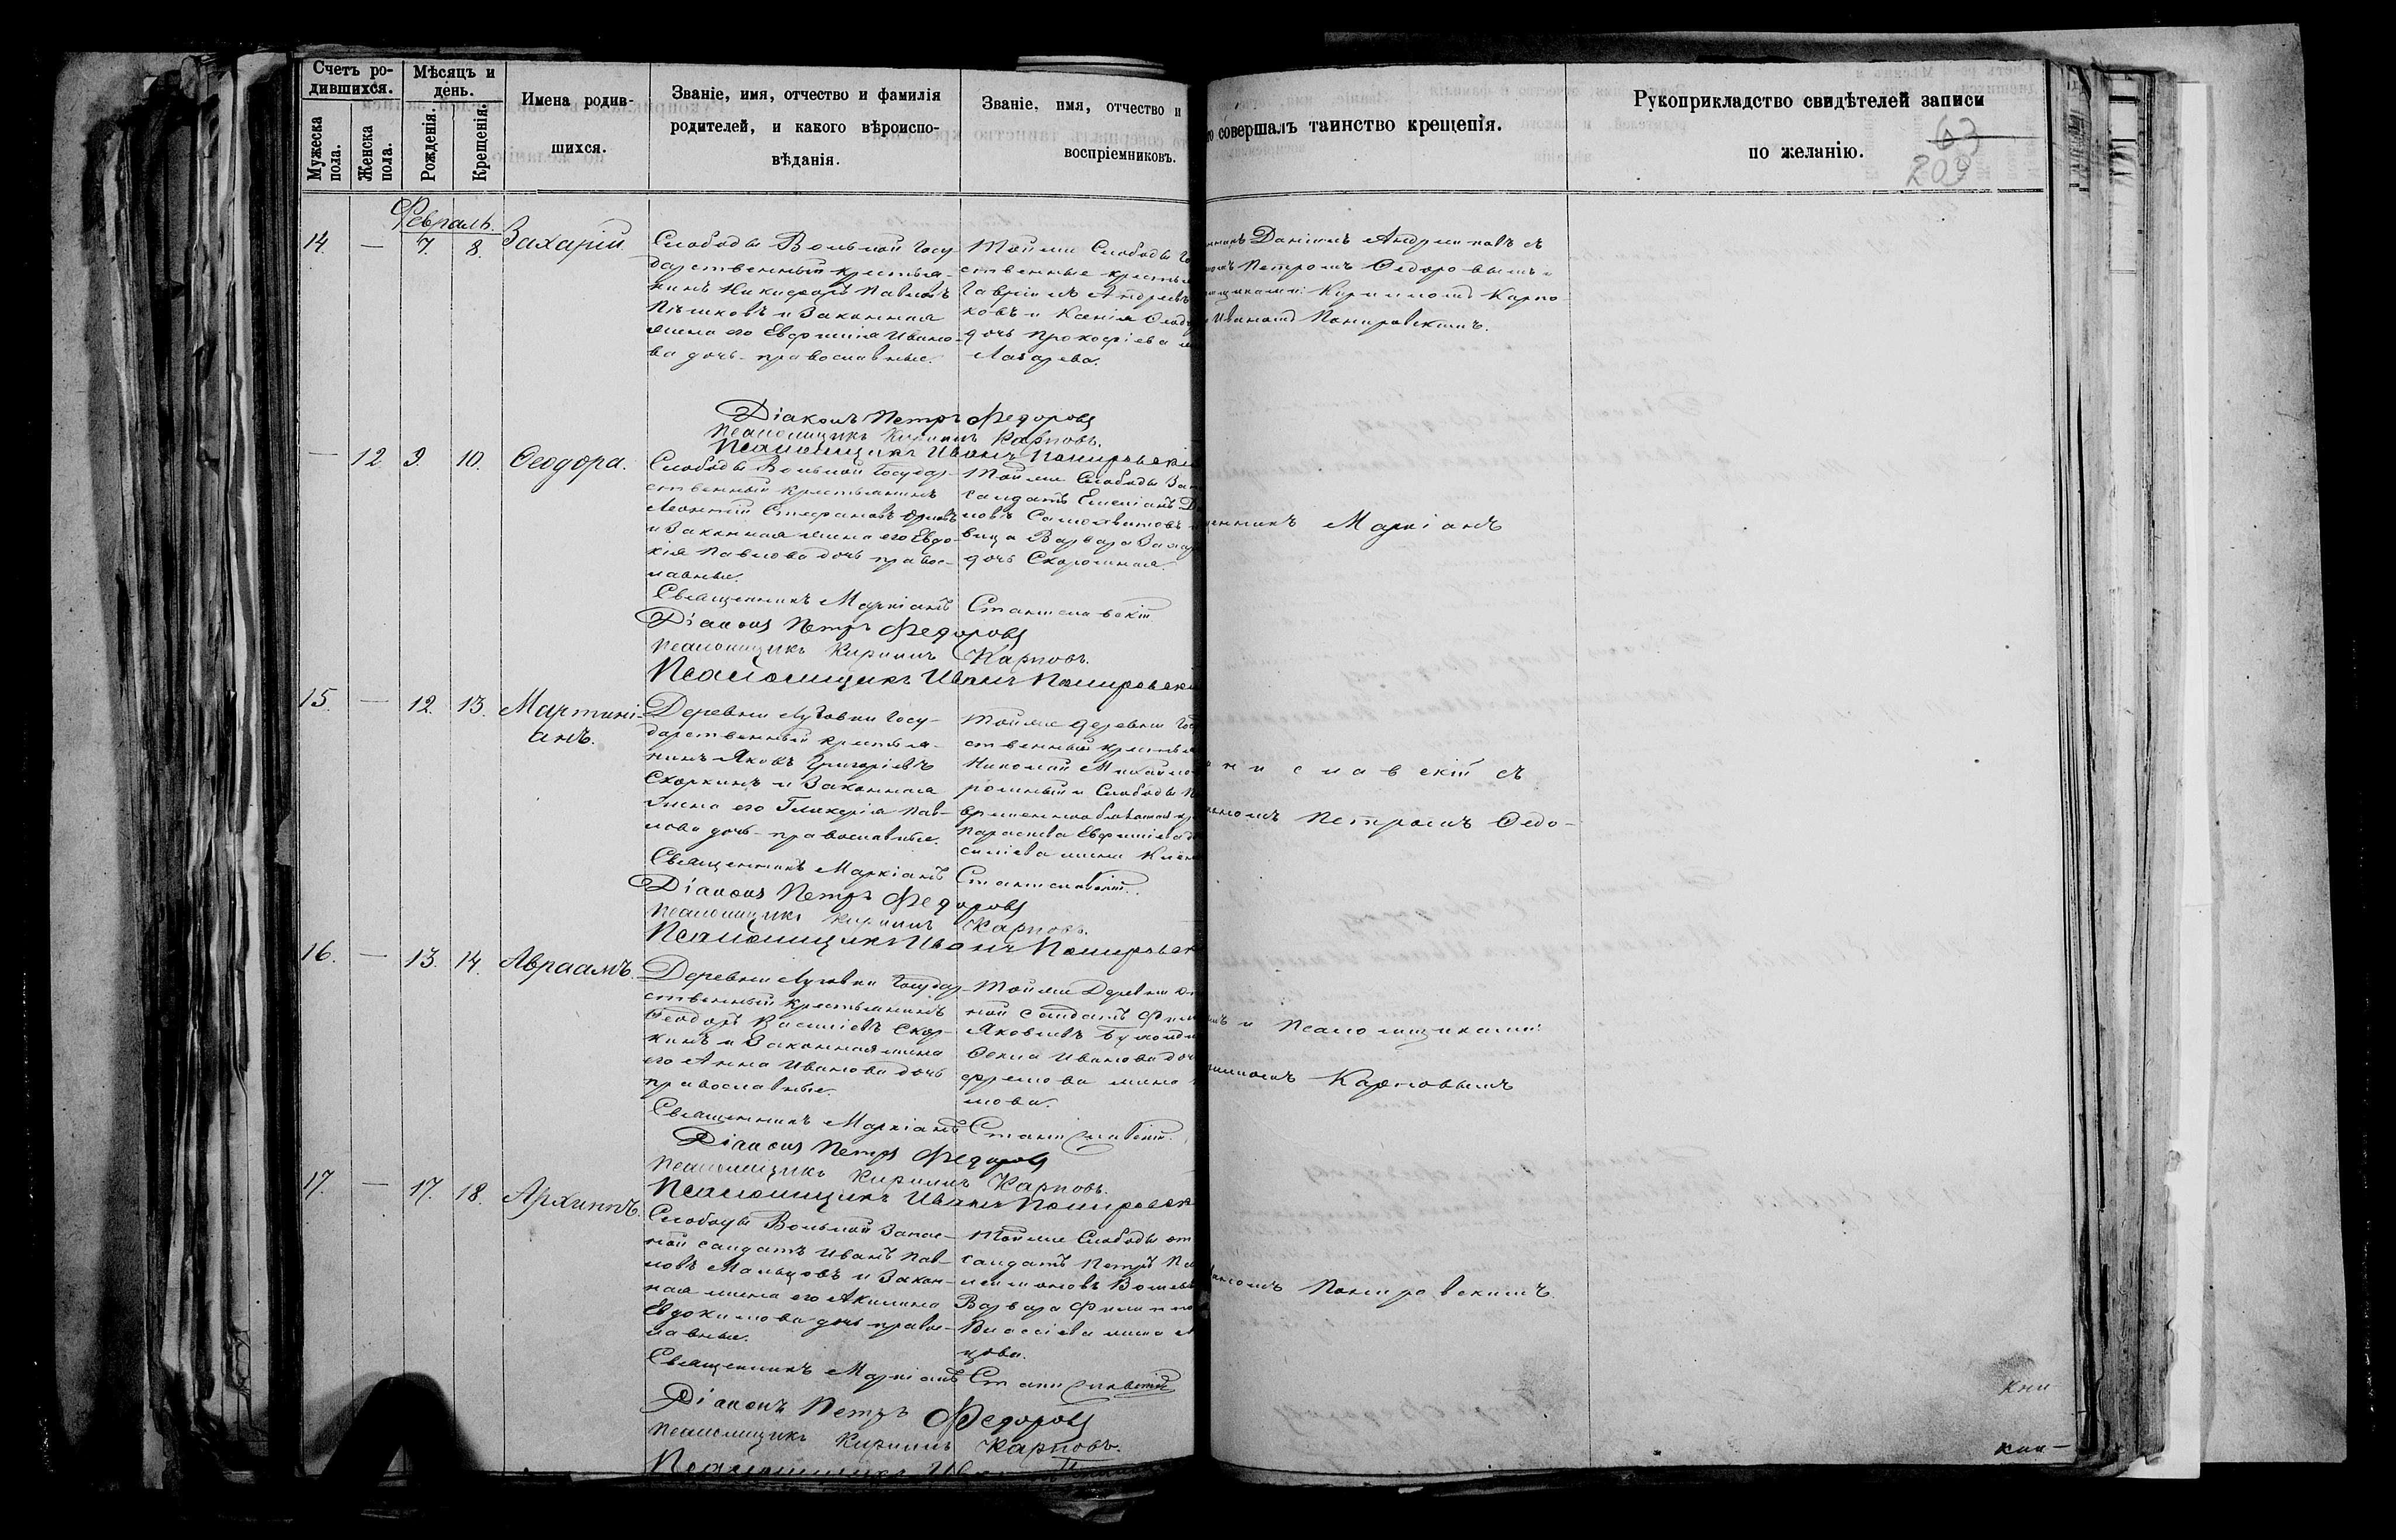 Счетъ ро-
дившихся.
Мужеска
пола.
Женска
пола.
Мѣсяцъ и
день.
Рожденія.
Крещенія.
Имена родив-
шихся.
Званіе, имя, отчество и фамилія
родителей, и какого вѣроиспо-
вѣданія.
Званіе, имя, отчество и
воспріемниковъ.
совершалъ таинство крещенія.
Рукоприкладство свидѣтелей записи
по желанію.
63
209
Февраль.
14. — 7. 8. Захарій.
Слободы Вольной Госу-
дарственный крестья-
нинъ Никифоръ Павловъ
Пѣшковъ и законная
жена его Евфимія Ивано-
ва дочь православные.
Той же Слободы Го
ственные крестья
Гавріилъ Андреевъ
ковъ и Ксенія Ѳеод
дочь Прокофіева
Лазарева.
Даніилъ Андреевъ съ
Петромъ Ѳедоровымъ
Кирилломъ Карпо-
Иваномъ Понировскимъ.
Діаконъ Петръ Федоровъ
Псаломщикъ Кириллъ Карповъ.
Псаломщикъ Иванъ Понировскій
— 12 9. 10. Ѳеодора.
Слободы Вольной Государ-
ственный крестьянинъ
Леонтій Стефановъ
и законная жена его Евдо-
кія Павлова дочь правос-
лавные.
Той же Слободы Зап
солдатъ Емеліанъ
новъ
вица Варвара Захар
дочь Скорошная.
Маркіанъ
Священникъ Маркіанъ Станиславскій
Діаконъ Петръ Федоровъ
Псаломщикъ Кириллъ Карповъ.
Псаломщикъ Иванъ Понировскій
15. — 12. 13. Мартині-
анъ.
Деревни Луговки Госу-
дарственный крестья-
нинъ Яковъ Григоріевъ
Скоркинъ и законная
жена его Гликерія Пав-
лова дочь православные.
Той же деревни Гос
ственный крестья
Николай Михайло
и Слободы
временнообязан
Параскева Евфиміева
жена
ни славскій съ
Петромъ Ѳедо-
Священникъ Маркіанъ Станиславскій.
Діаконъ Петръ Федоровъ
Псаломщикъ Кириллъ Карповъ.
Псаломщикъ Иванъ Понировск
16. — 13. 14. Авраамъ.
Деревни Луговки Государ-
ственный крестьянинъ
Ѳеодоръ Василіевъ Скор-
кинъ и законная жена
его Анна Иванова дочь
православные.
Той же Деревни
ной солдатъ Фили
Яковлевъ
Иванова доч
жена
мова.
и Псаломщиками:
Карповымъ
Священникъ Маркіанъ Станиславскій.
Діаконъ Петръ Федоровъ
Псаломщикъ Кириллъ Карповъ.
Псаломщикъ Иванъ Понировск
17. — 17. 18. Архиппъ.
Слободы Вольной Запас-
ной солдатъ Иванъ Пав-
ловъ Мальцовъ и закон-
ная жена его Акилина
Евдокимова дочь правос-
лавные.
Той же Слободы от
солдатъ Петръ
Варвара Филиппо
Власіева жена
цова.
Понировскимъ.
Священникъ Маркіанъ Станиславскій
Діаконъ Петръ Федоровъ
Псаломщикъ Кириллъ Карповъ.
Псаломщикъ
кни
кни-